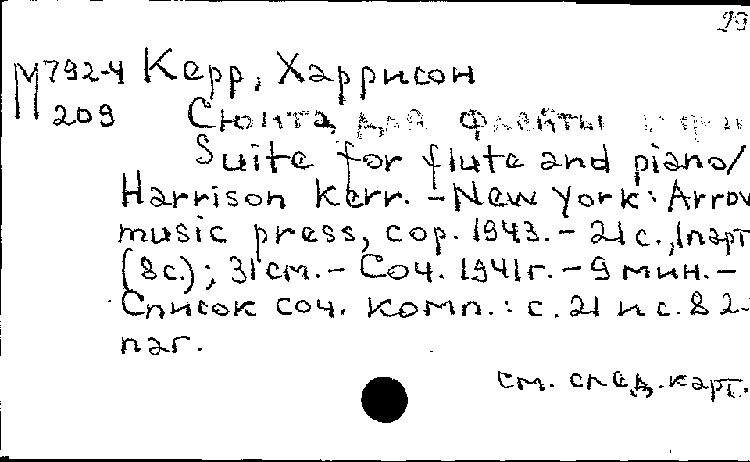 29
М792-4 Керр, Харрисон
209 Сюита для флейты и фп
Suite for flute and piano/
Harrison Kerr. – New York: Arrow
music press, cop. 1943. – 21 с., 1 парт
(8 с.); 31 см. – Соч. 1941 г. – 9 мин. –
Список соч. комп.: с. 21 и с. 8 2-
паг.
см. след. карт.